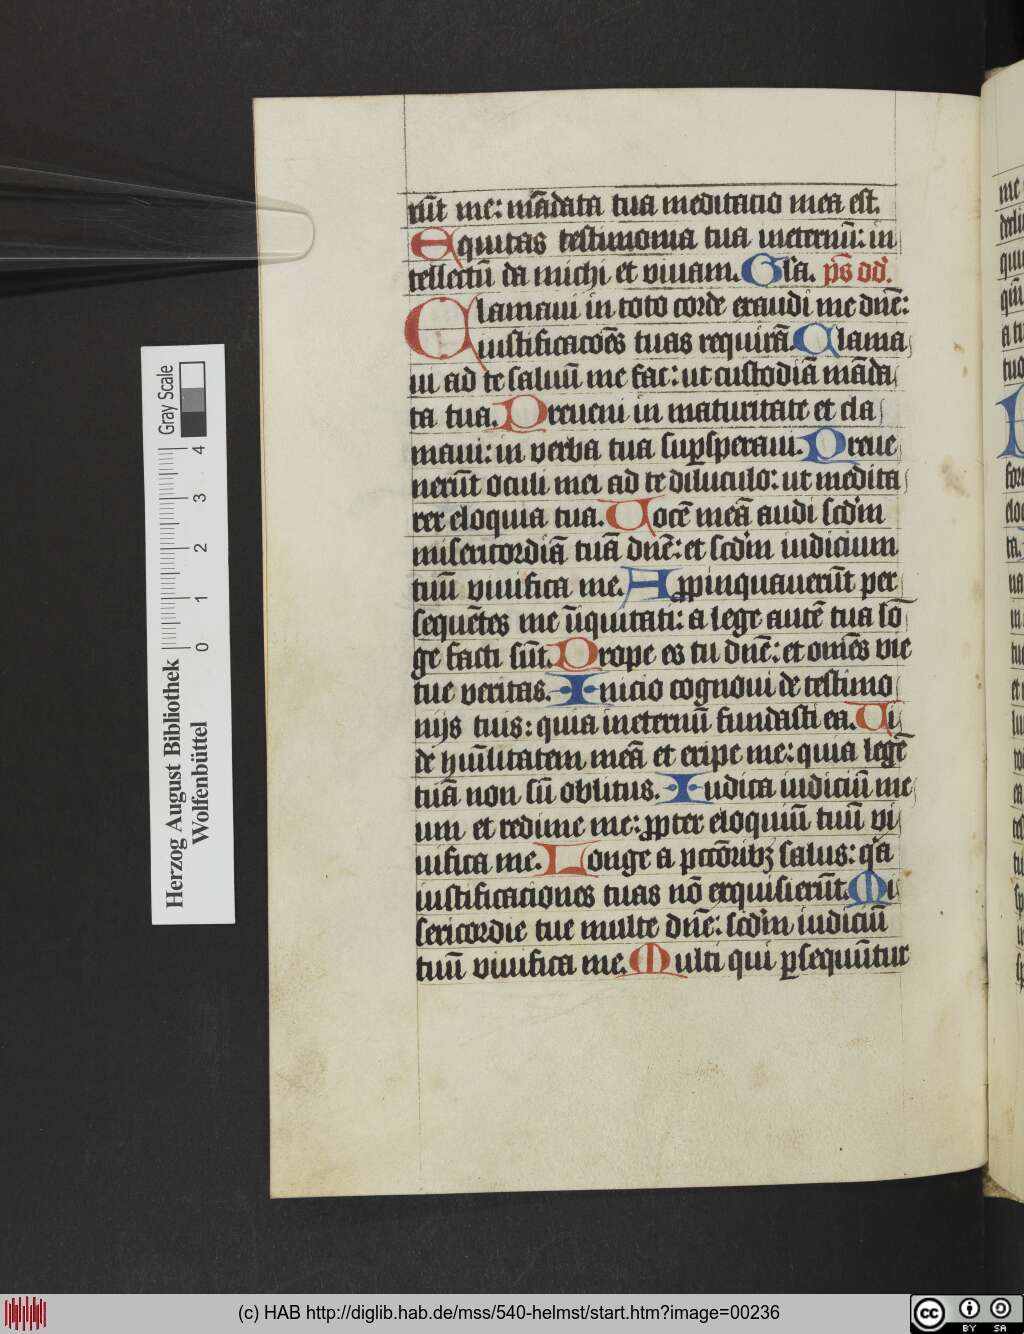 rūt me: mādata tua meditacio mea est.
Equitas testimonia tua ineternū: in
tellectū da michi et viuam. Glā. ps dd.
Clamaui in toto corde exaudi me dnē:
iustificacoēs tuas requirā. Clama
ui ad te saluū me fac: ut custodiā māda
ta tua. Preueni in maturitate et cla
maui: in verba tua supsperaui. Preue
nerūt oculi mei ad te diluculo: ut medita
rer eloquia tua. Uocē meā audi scdm
misericordiā tuā dnē: et scdm iudicium
tuū viuifica me. Appinquauerūt per
sequētes me īiquitati: a lege autē tua lō
ge facti sūt. Prope es tu dnē: et omēs vie
tue veritas. Inicio cognoui de testimo
nijs tuis: quia ineternū fundasti ea. Ui
de hūilitatem meā et eripe me: quia legē
tuā non sū oblitus. Iudica iudiciū me
um et redime me: ppter eloquiū tuū vi
uifica me. Longe a pctōribꝫ salus: qa
iustificaciones tuas nō exquisierūt. Mi
sericordie tue multe dnē: scdm iudiciū
tuū viuifica me. Multi qui psequūtur
Gray Scale
0 1 2 3 4
Herzog August Bibliothek
Wolfenbüttel
(c) HAB http://diglib.hab.de/mss/540-helmst/start.htm?image=00236
cc BY SA